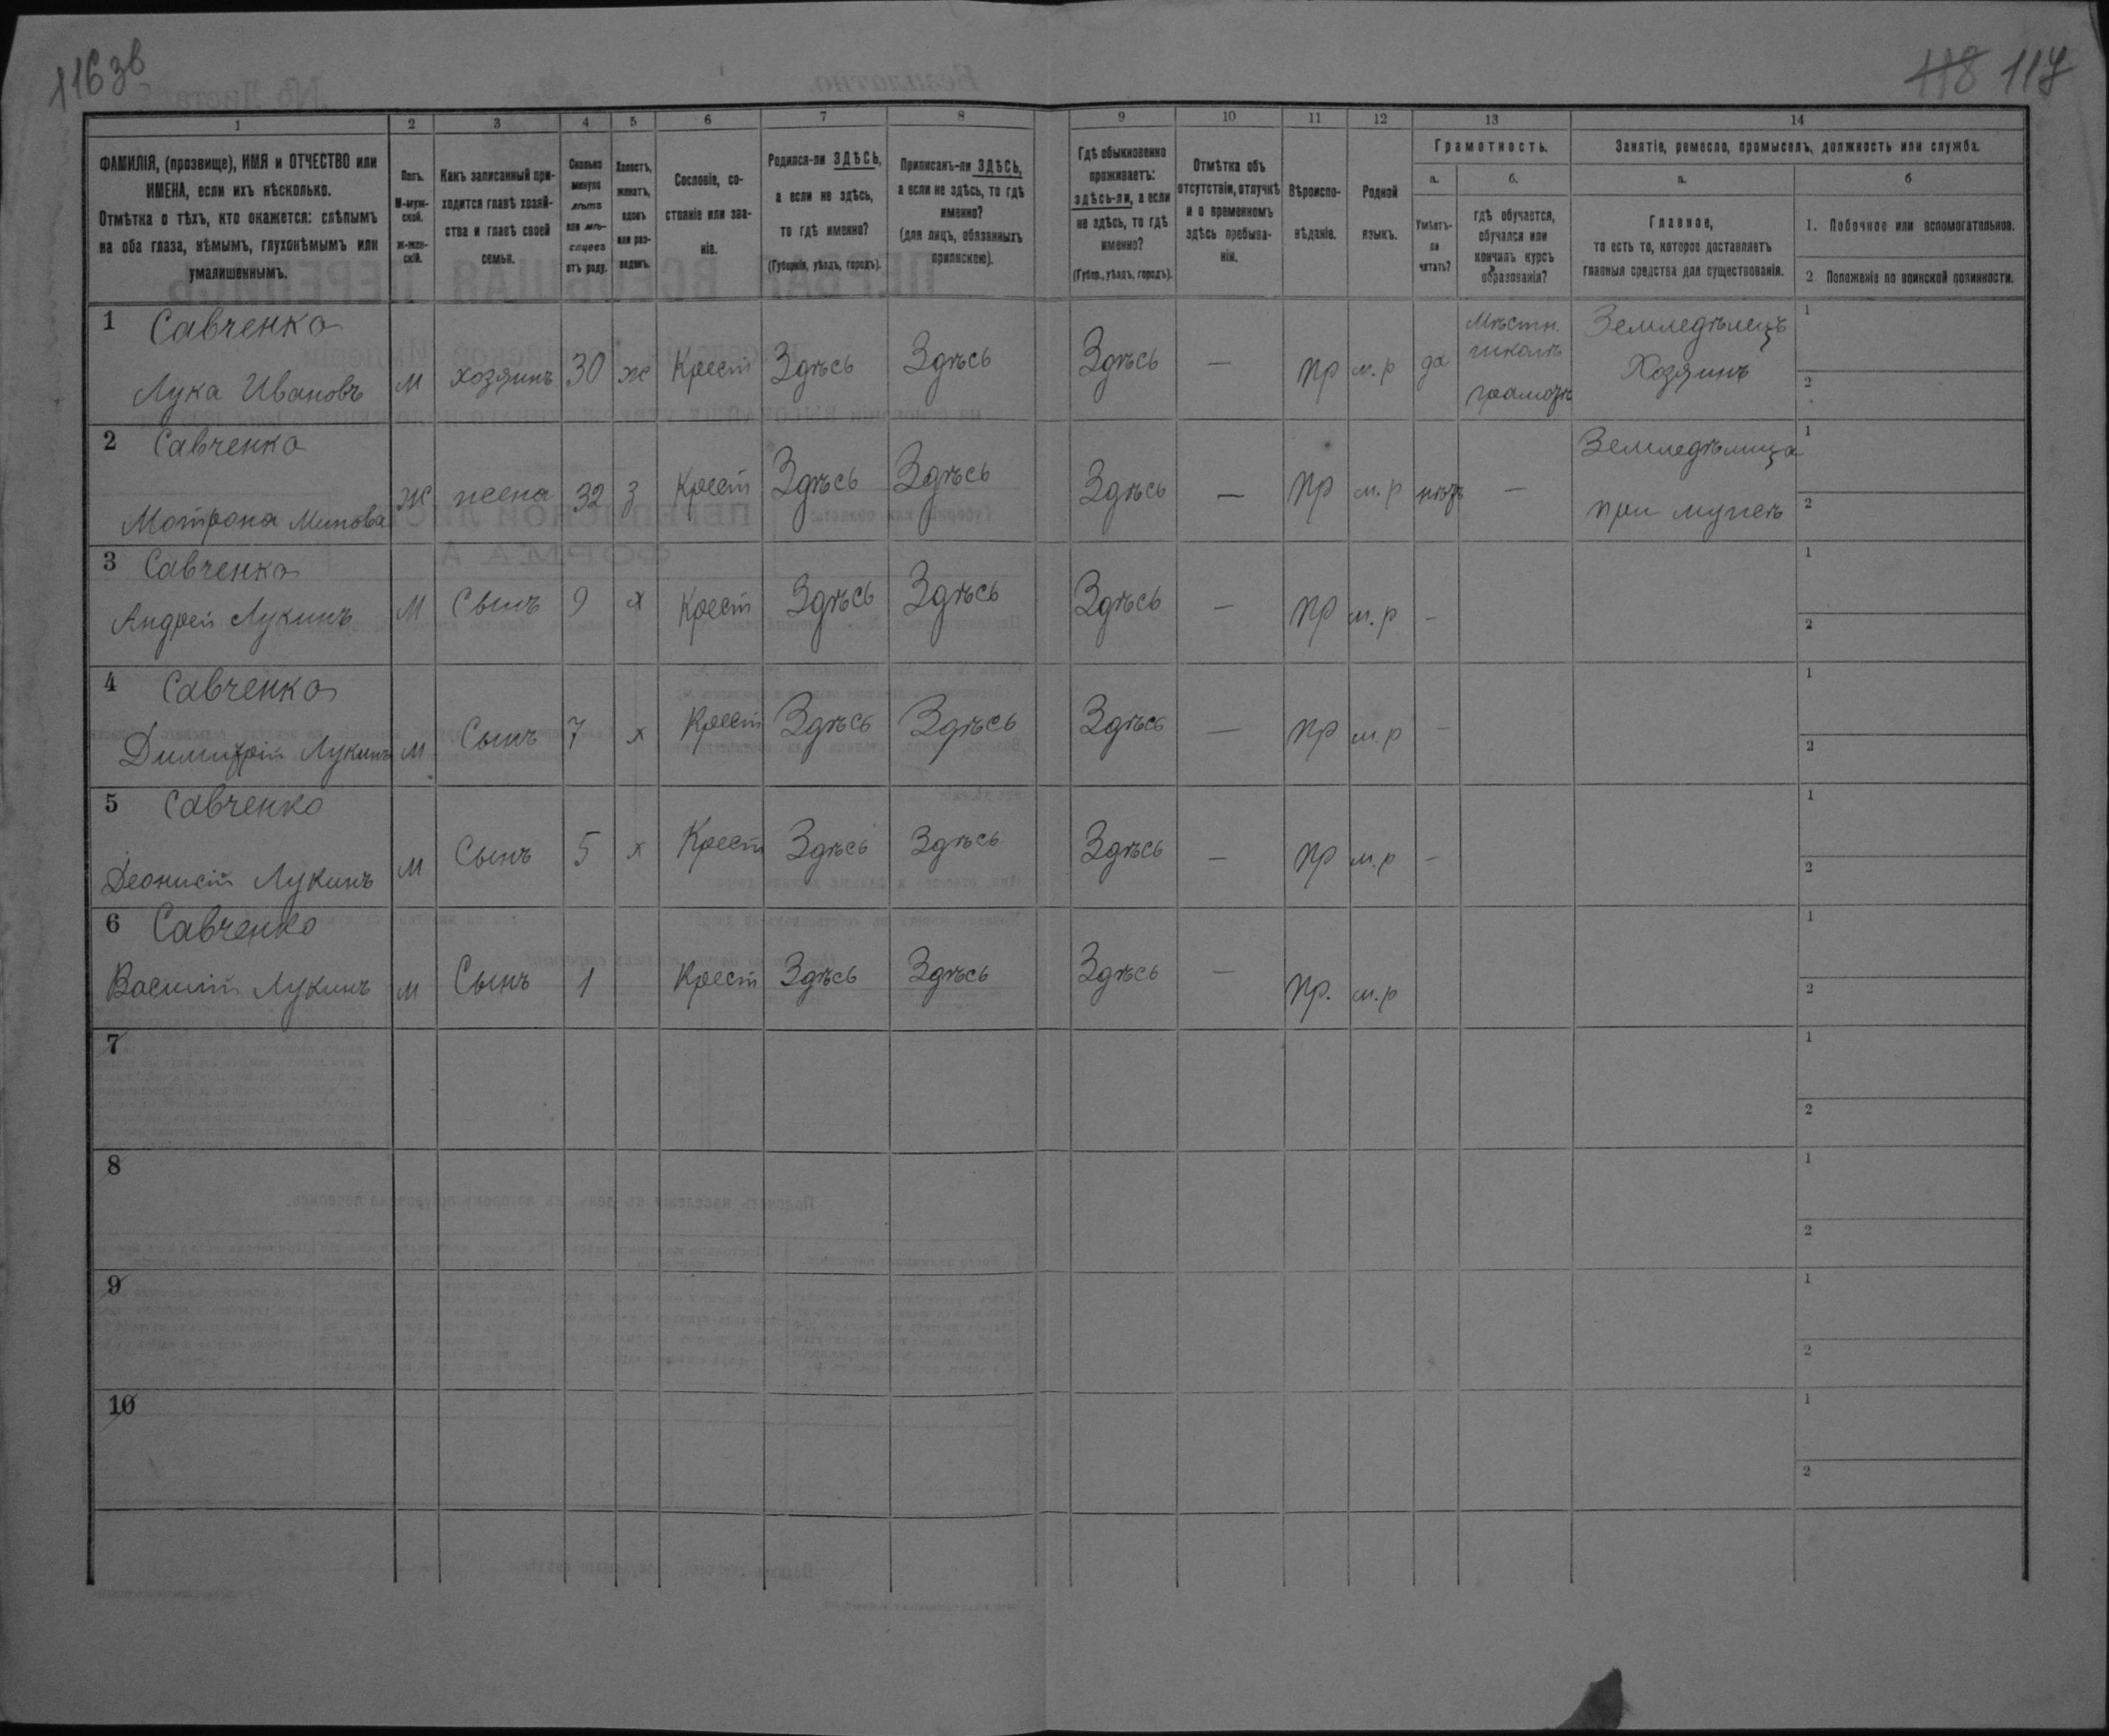 116 зв
118 117
1 2 3 4 5 6 7 8 9 10 11 12 13 14
ФАМИЛІЯ, (прозвище), ИМЯ и ОТЧЕСТВО или
ИМЕНА, если ихъ нѣсколько.
Отмѣтка о тѣхъ, кто окажется: слѣпымъ
на оба глаза, нѣмымъ, глухонѣмымъ или
умалишеннымъ.
Полъ.
М-муж-
ской.
ж-жен-
скій.
Какъ записанный при-
ходится главѣ хозяй-
ства и главѣ своей
семьи.
Сколько
минуло
лѣтъ
или мѣ-
сяцевъ
отъ роду.
Холостъ,
женатъ,
вдовъ
или раз-
веденъ.
Сословіе, со-
стояніе или зва-
ніе.
Родился-ли ЗДѢСЬ,
а если не здѣсь,
то гдѣ именно?
(Губернія, уѣздъ, городъ).
Приписанъ-ли ЗДѢСЬ,
а если не здѣсь, то гдѣ
именно?
(для лицъ, обязанныхъ
припискою).
Гдѣ обыкновенно
проживаетъ:
здѣсь-ли, а если
не здѣсь, то гдѣ
именно?
(Губер., уѣздъ, городъ).
Отмѣтка объ
отсутствіи, отлучкѣ
и о временномъ
здѣсь пребыва-
ніи.
Вѣроиспо-
вѣданіе.
Родной
языкъ.
Грамотность.
а.
Умѣетъ-
ли
читать?
б.
гдѣ обучается,
обучался или
кончилъ курсъ
образованія?
Занятіе, ремесло, промыселъ, должность или служба.
а.
Главное,
то есть то, которое доставляетъ
главныя средства для существованія.
б
1. Побочное или вспомогательное.
2 Положеніе по воинской повинности.
1 Савченко
Лука Ивановъ м хозяинъ 30 ж Крест Здѣсь Здѣсь Здѣсь — пр м.р да
Мѣстн.
школѣ
грамотѣ
Земледѣлецъ
Хозяинъ
1
2
2 Савченко
Мотрона Минова ж жена 32 з Крест Здѣсь Здѣсь Здѣсь — пр м.р нѣтъ —
Земледѣлица
при мужѣ
1
2
3 Савченко
Андрей Лукинъ м Сынъ 9 х Крест Здѣсь Здѣсь Здѣсь — пр м.р —
1
2
4 Савченко
Димитрій Лукинъ м Сынъ 7 х Крест Здѣсь Здѣсь Здѣсь — пр м.р —
1
2
5 Савченко
Деонисій Лукинъ м Сынъ 5 х Крест Здѣсь Здѣсь Здѣсь — пр м.р —
1
2
6 Савченко
Василій Лукинъ м Сынъ 1 Крест Здѣсь Здѣсь Здѣсь — пр. м.р
1
2
7
1
2
8
1
2
9
1
2
10
1
2